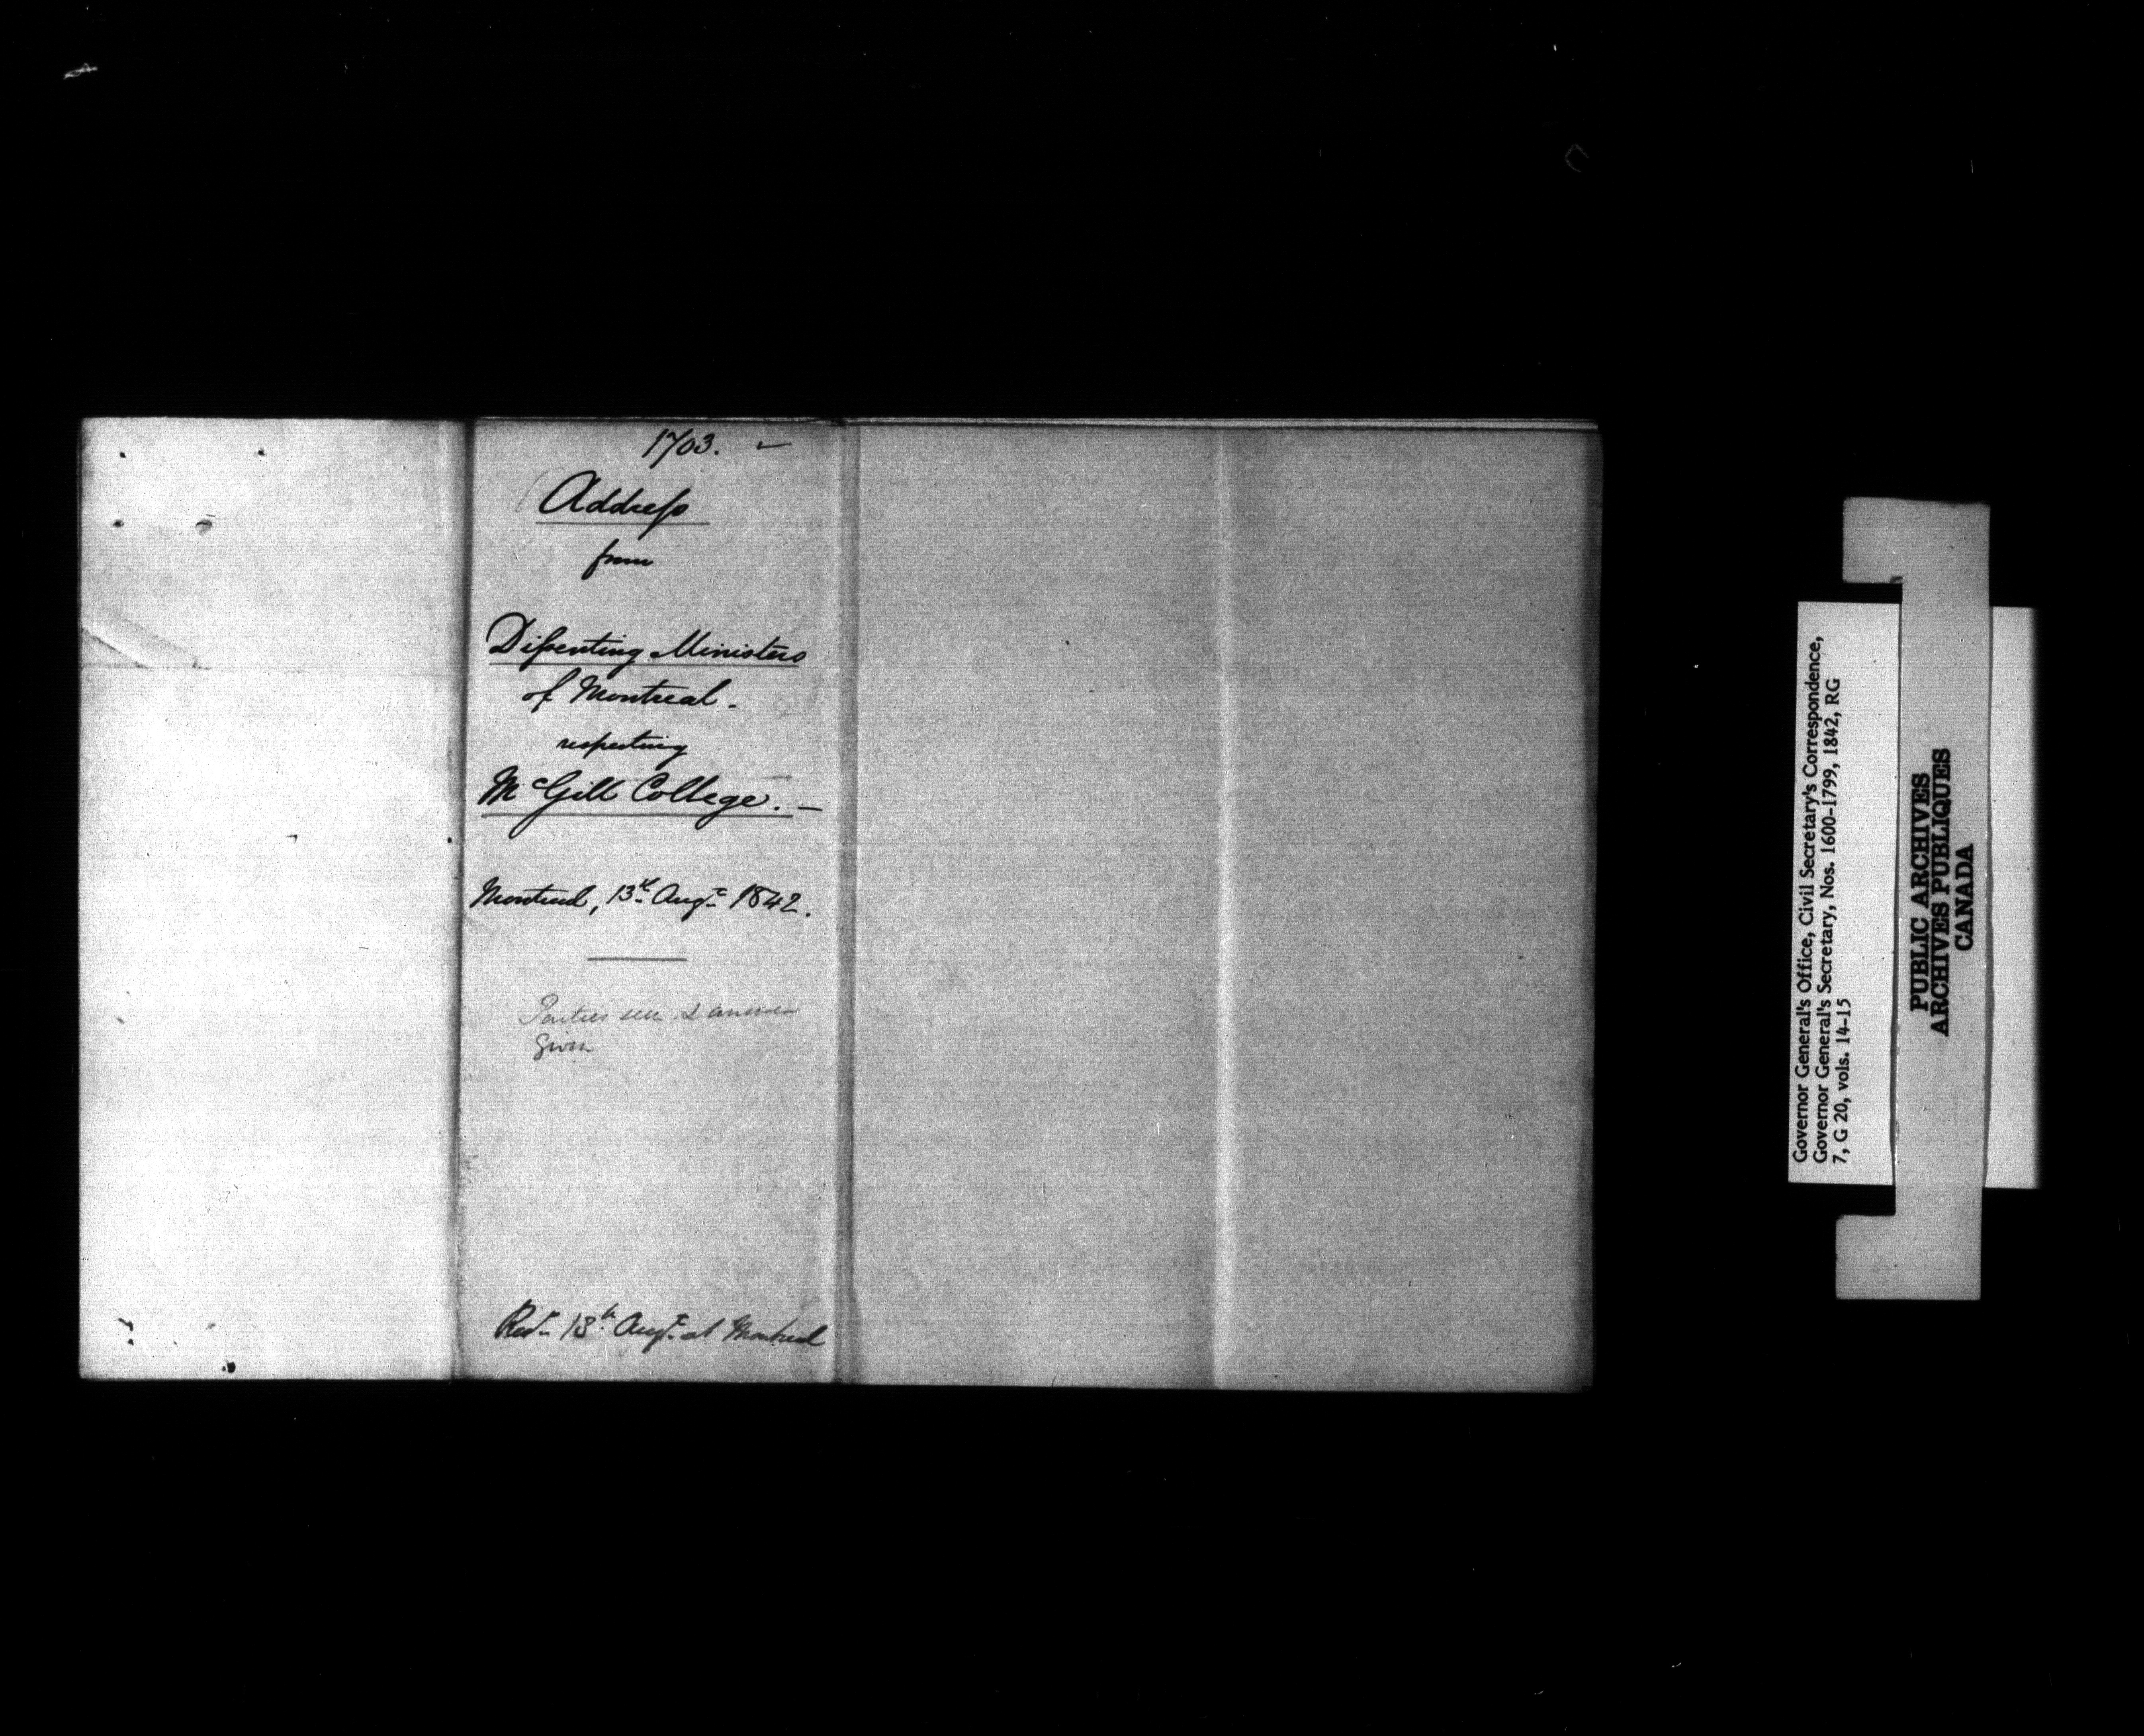 1703.
Address
from
Dissenting Ministers
of Montreal.
respecting
McGill College. —
Montreal, 13th Augt 1842.
Parties seen & answer
Given
Recd 13th Augt at Montreal
Governor General's Office, Civil Secretary's Correspondence,
Governor General's Secretary, Nos. 1600-1799, 1842, RG
7, G 20, vols. 14-15
PUBLIC ARCHIVES
ARCHIVES PUBLIQUES
CANADA